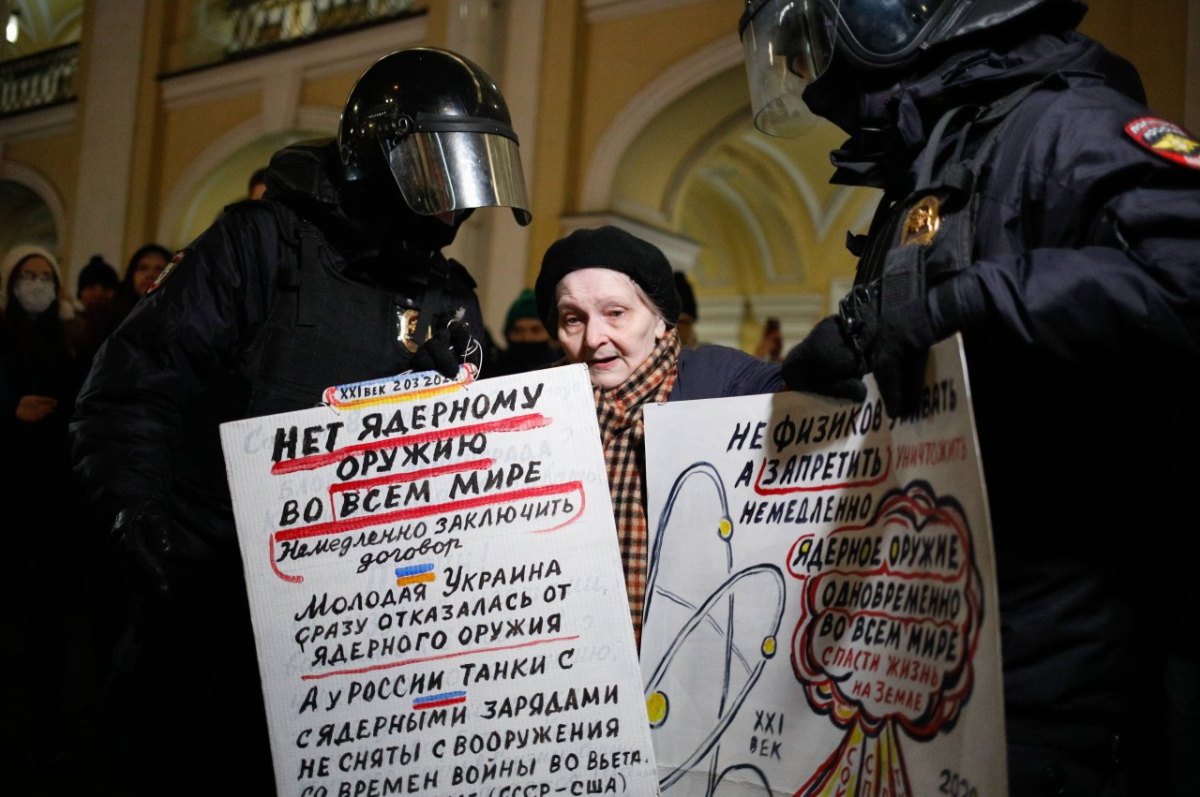 XXI ВЕК 2 03 202
НЕТ ЯДЕРНОМУ
ОРУЖИЮ
ВО ВСЕМ МИРЕ
Немедленно ЗАКЛЮЧИТЬ
договор
Молодая Украина
СРАЗУ ОТКАЗАЛАСЬ ОТ
ЯДЕРНОГО ОРУЖИЯ
А У РОССИИ ТАНКИ С
С ЯДЕРНЫМИ ЗАРЯДАМИ
НЕ СНЯТЫ С ВООРУЖЕНИЯ
СО ВРЕМЕН ВОЙНЫ ВО ВЬЕТ
(СССР-США)
НЕ ФИЗИКОВ
А ЗАПРЕТИТЬ УНИЧТОЖИТЬ
НЕМЕДЛЕННО
ЯДЕРНОЕ ОРУЖИЕ
ОДНОВРЕМЕННО
ВО ВСЕМ МИРЕ
СПАСТИ ЖИЗНЬ
НА ЗЕМЛЕ
XXI
ВЕК